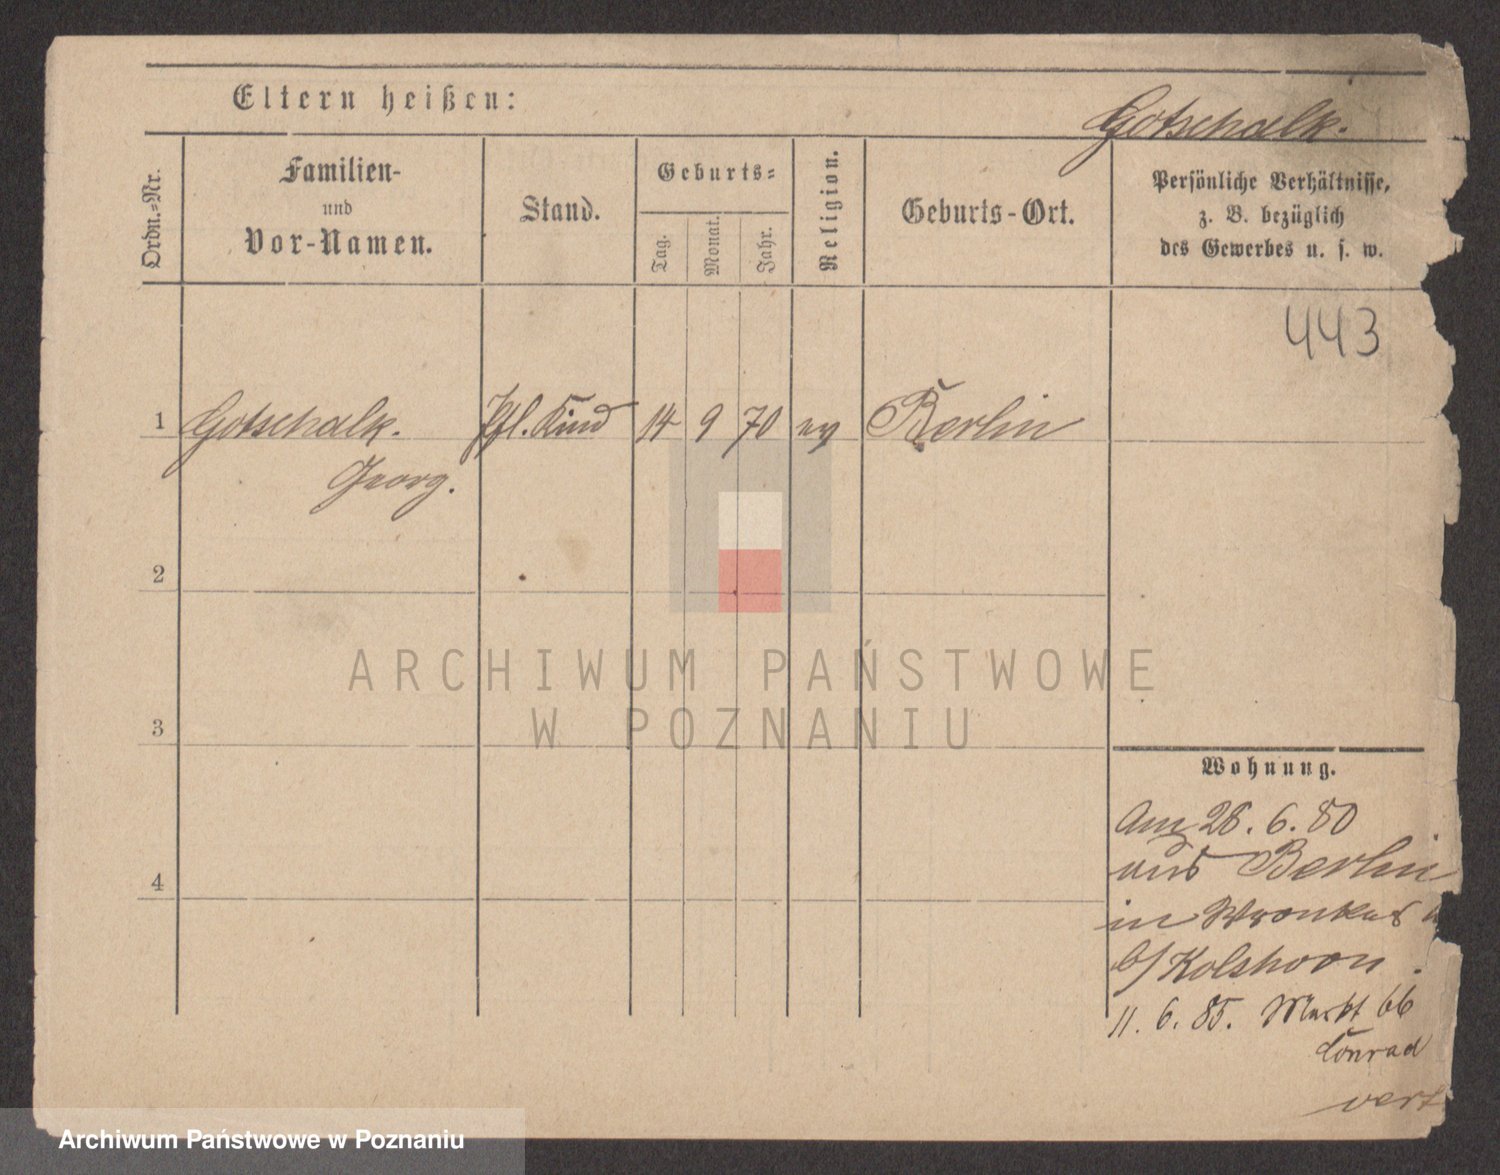 Eltern heißen:
Gotschalk.
Ordn.-Nr.
Familien-
und
Vor-Namen.
Stand.
Geburts-
Tag.
Monat.
Jahr.
Religion.
Geburts-Ort.
Persönliche Verhältnisse,
z. B. bezüglich
des Gewerbes u. s. w.
443
1 Gotschalk. Pfl. Kind 14 9 70 ev Berlin
Georg.
2
3
4
ARCHIWUM PAŃSTWOWE
W POZNANIU
Wohnung.
Am 28. 6. 80
aus Berlin
in
b/ Kolshorn.
11. 6. 85. Markt 66
Conrad
vert
Archiwum Państwowe w Poznaniu